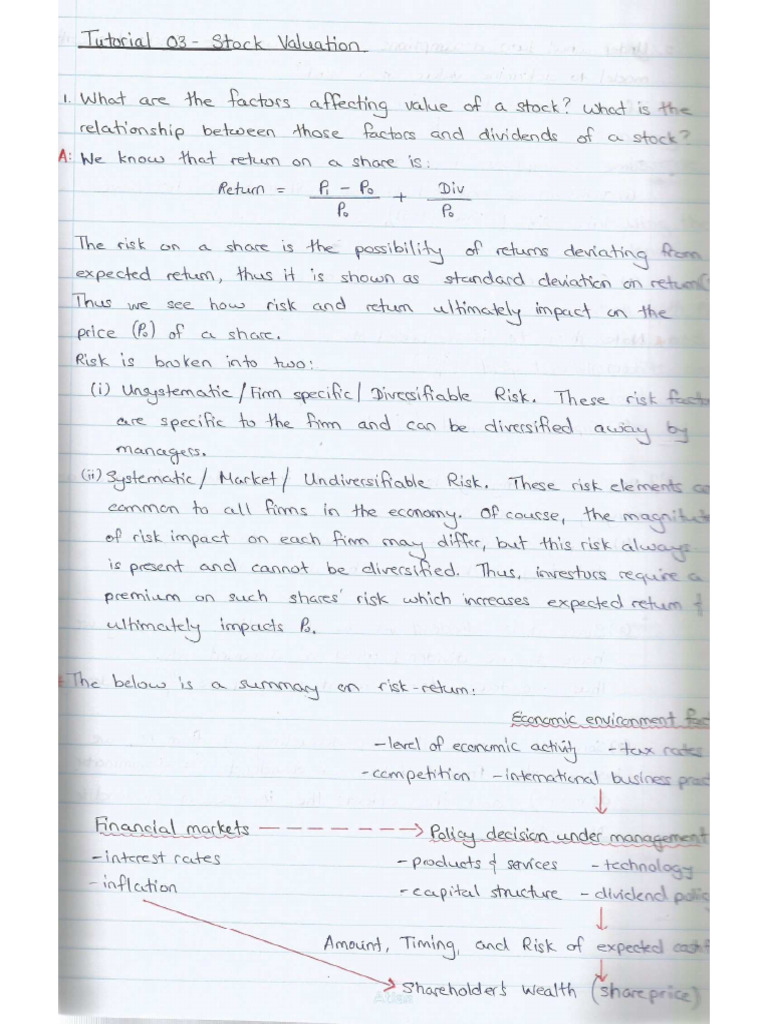 Tutorial 03 - Stock Valuation
1. What are the factors affecting value of a stock? What is the
relationship between those factors and dividends of a stock?
A: We know that return on a share is:
Return = P₁ - P₀ / P₀ + Div / P₀
The risk on a share is the possibility of returns deviating from
expected return, thus it is shown as standard deviation on return
Thus we see how risk and return ultimately impact on the
price (P₀) of a share.
Risk is broken into two:
(i) Unsystematic / Firm specific / Diversifiable Risk. These risk
are specific to the firm and can be diversified away by
managers.
(ii) Systematic / Market / Undiversifiable Risk. These risk elements
common to all firms in the economy. Of course, the
of risk impact on each firm may differ, but this risk always
is present and cannot be diversified. Thus, investors require a
premium on such shares' risk which increases expected return &
ultimately impacts P₀.
The below is a summary on risk-return:
Economic environment
- level of economic activity - tax rates
- competition - international business
Financial markets - - - - - → Policy decision under management
- interest rates - products & services - technology
- inflation - capital structure - dividend
Amount, Timing, and Risk of expected
Shareholders Wealth (share price)